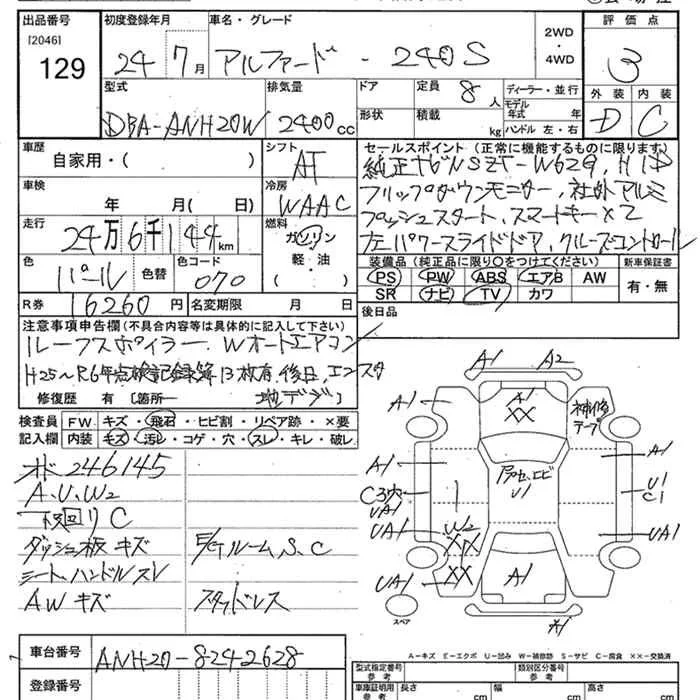 出品番号 初度登録年月 車名・グレード 2WD・4WD 評価点
[2046]
129 24 7月 アルファード - 240S 3
型式 排気量 ドア 定員 8人 ディーラー・並行 外装 内装
DBA-ANH20W 2400cc 形状 積載 kg モデル年式 年 ハンドル 左・右 D C
車歴 自家用・( ) シフト AT
セールスポイント (正常に機能するものに限ります)
純正ナビNSZT-W62G, HID
フリップダウンモニター、社外アルミ
プッシュスタート、スマートキー×2
左パワースライドドア、クルーズコントロール
車検 年 月( 日) 冷房 WAAC
走行 24万6千144km 燃料 ガソリン 軽・油 ( )
色 パール 色替 色コード 070
装備品 (純正品に限り○をつけてください) 新車保証書
PS PW ABS エアB AW 有・無
SR ナビ TV カワ
R券 16260円 名変期限 月 日 後日品
注意事項申告欄 (不具合内容等は具体的に記入して下さい)
ルーフスポイラー、Wオートエアコン
H25~R6年点検記録簿13枚有、後日、エンスタ
修復歴 有 [箇所 地デジ
検査員記入欄 FW キズ・飛石・ヒビ割・リペア跡・×要
内装 キズ・汚レ・コゲ・穴・スレ・キレ・破レ
246145
A、U、W2
下回りC
ダッシュ板キズ
シート、ハンドルスレ
AWキズ
E/gルーム、S、C
スタッドレス
A1 A2
A1 A1 XX 補修テープ
A1 A1
C3穴 UA1 U1 U1 C1
UA1 W2 XX UA1
UA1 XX A1
スペア A1
A-キズ E-エクボ U-凹み W-補修跡 S-サビ C-腐食 XX-交換済
車台番号 ANH20-8242628
登録番号
型式指定番号 参考 類別区分番号 参考
車庫証明用 参考 長さ cm 幅 cm 高さ cm